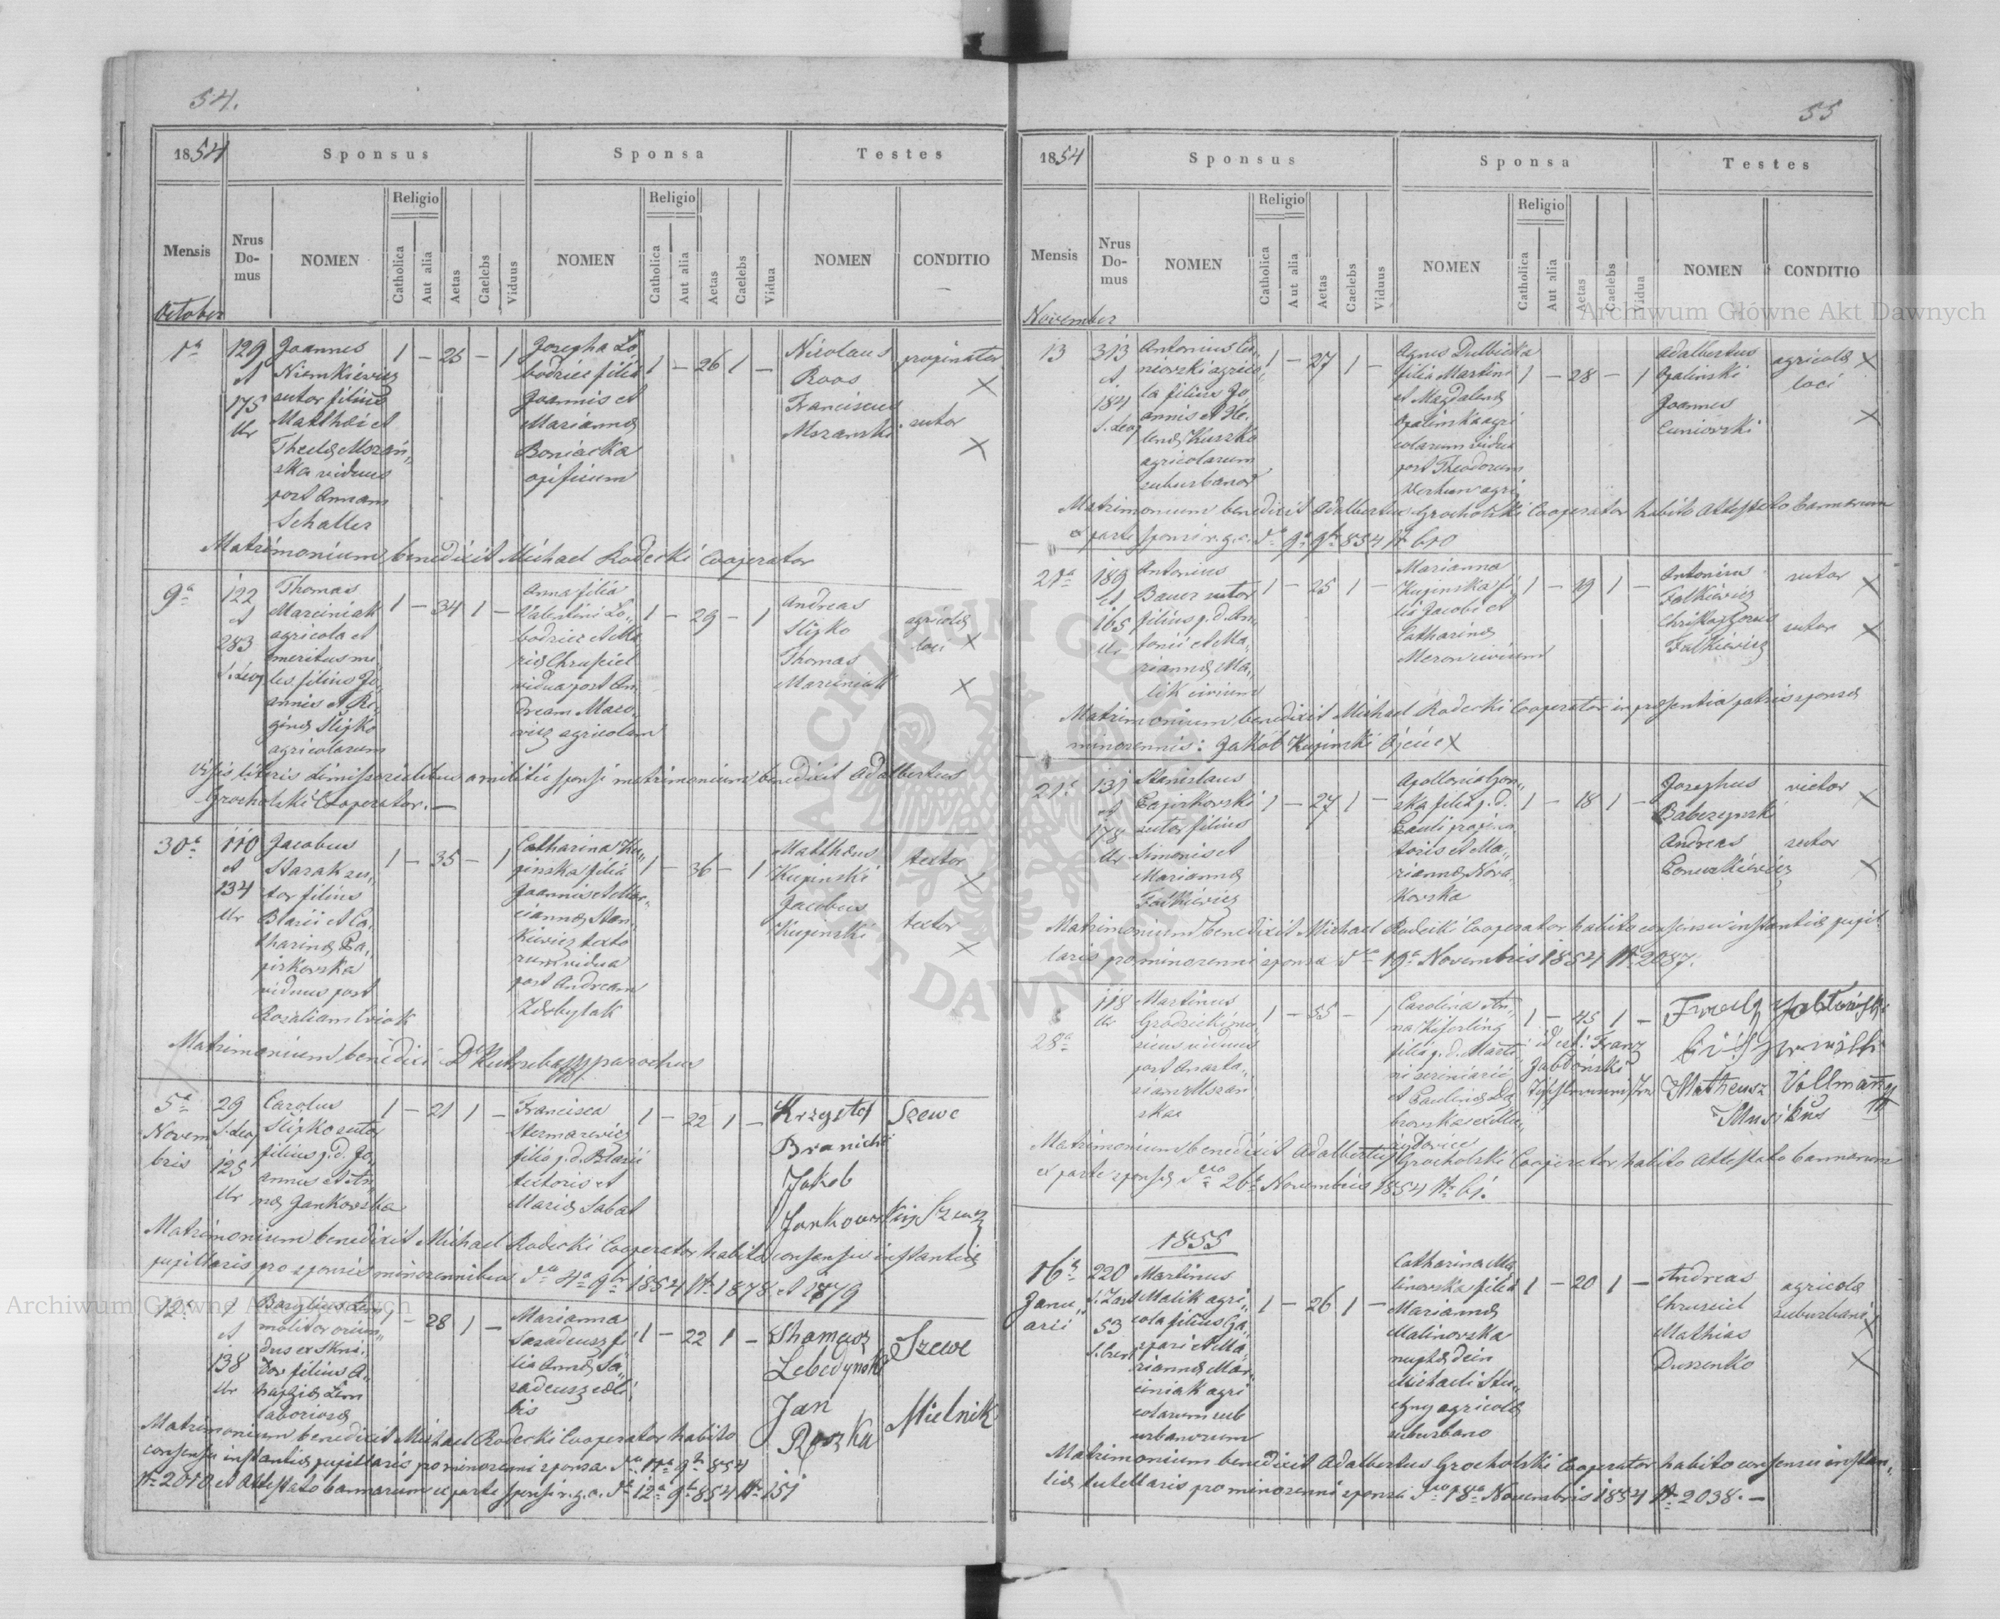 54.
1854
Sponsus
Sponsa
Testes
Mensis
Nrus Do- mus
NOMEN
Religio
Catholica
Aut alia
Aetas
Caelebs
Viduus
NOMEN
Religio
Catholica
Aut alia
Aetas
Caelebs
Vidua
NOMEN
CONDITIO
October
1a
129
et
175
Ur
Joannes
Niemkiewicz
sutor filius
Matthæi et
Theclæ Mozań-
ska viduus
post Annam
Schaller
1 – 25 – 1
Josepha Ło-
bodziec filia
Joannis et
Mariannæ
Boniacka
opificum
1 – 26 1 –
Nicolaus
Roos
Franciscus
Mozanski
propinator
X
sutor
X
Matrimonium benedixit Michael Radecki Cooperator
9a
122
et
283
S. Leop
Thomas
Marciniak
agricola et
meritus mi-
les filius Jo-
annis et Re-
ginæ Slipko
agricolarum
1 – 34 1 –
Anna filia
Valentini Ło-
bodziec et Ma-
riæ Chruściel
vidua post An-
dream Maco-
wicz agricolam
1 – 29 – 1
Andreas
Slipko
Thomas
Marciniak
agricolæ
loci X
X
Visis literis dimissorialibus a militiæ sponsi matrimonium benedixit Adalbertus
Grocholski Cooperator. –
30a
110
et
134
Ur
Jacobus
Starak su-
tor filius
Blasii et Ca-
tharinæ Pa-
pirkovska
viduus post
Rosaliam Lviak
1 – 35 – 1
Catharina Ku-
pinska filia
Joannis et Mar-
iannæ Stan-
kiewicz texto
rum vidua
post Andream
Zdobylak
1 – 36 – 1
Matthæus
Kupinski
Jacobus
Kupinski
textor
X
textor
X
Matrimonium benedixi parochus
5a
Novem
bris
29
S. Leop
125
Ur
Carolus
Slipko sutor
filius p. d. Jo-
annis et An-
næ Jankowska
1 – 21 1 –
Francisca
Stermarewicz
filia p. d. Blasii
textoris et
Mariæ Sabat
1 – 22 1 –
Krzysztof
Branicki
Jakob
Jankowski
Szewc
Szewc
Matrimonium benedixit Michael Radecki Cooperator habito consensu instantiæ
pupillaris pro sponsis minorennibus dto 4a 9br 1854 Nr 1878 et 1879
12a
1
et
138
Ur
1 – 28 1 –
Marianna
Sasadeusz fi-
lia Annæ Sa-
sadeusz cæli-
bis
1 – 22 1 –
Lebedynski
Jan
Roszka
Szewc
Mielnik
Matrimonium benedixit Michael Radecki Cooperator habito
consensu instantiæ pupillaris pro minorenni sponsa dto 11a 9br 854
Nr 2010 et Attestato bannorum ex parte sponsi r. g. c. dto 12a 9br 854 Nr 151
55
1854
Sponsus
Sponsa
Testes
Mensis
Nrus Do- mus
NOMEN
Religio
Catholica
Aut alia
Aetas
Caelebs
Viduus
NOMEN
Religio
Catholica
Aut alia
Aetas
Caelebs
Vidua
NOMEN
CONDITIO
November
13
313
et
184
S. Leop
Antonius Cu-
niovski agrico-
la filius Jo-
annis et He-
lenæ Kuszko
agricolarum
suburbanor
1 – 27 1 –
Agnes Dulbicka
filia Martini
et Magdalenæ
Opalinska agri
colarum vidua
post Theodorum
Verhun agri
1 – 28 – 1
Adalbertus
Opalinski
Joannes
Cuniovski
agricolæ X
loci
X
Matrimonium benedixit Adalbertus Grocholski Cooperator habito Attestato bannorum
ex parte sponsi r. g. c. dto 9a 9br 854 Nr 610
21a
189
et
165
Ur
Antonius
Bauer sutor
filius p. d. An-
tonii et Ma-
riannæ Ma-
lik civium
1 – 25 1 –
Marianna
Kupinska fi-
lia Jacobi et
Catharinæ
Meron civium
1 – 19 1 –
Antonius
Falkiewicz
Christophorus
Falkiewicz
sutor X
sutor X
Matrimonium benedixit Michael Radecki Cooperator in præsentia patris sponsæ
minorennis: Jakób Kupinski Ojciec X
21a
131
et
178
Ur
Stanislaus
Papirkovski
sutor filius
Simonis et
Mariannæ
Falkiewicz
1 – 27 1 –
Apollonia Gon-
ska filia p. d.
Pauli propina
toris et Ma-
riannæ Nova-
kovska
1 – 18 1 –
Josephus
Babczynski
Andreas
victor X
sutor
X
Matrimonium benedixit Michael Radecki Cooperator habito consensu instantiæ pupil-
laris pro minorenni sponsa dto 19a Novembris 1854 Nr 2087.
28a
118
Ur
Martinus
Grodzicki mu-
sicus viduus
post Anasta-
siam Mozan
ska
1 – 55 – 1
Carolina An-
na Kiferling
filia p. d. Marti-
ni scriniarii
et Paulinæ Dą-
browska
1 – 45 1 –
id est: Franz
Jabłoński
Matheusz Vollmann
Musikus
Matrimonium benedixit Adalbertus Grocholski Cooperator habito Attestato bannorum
ex parte sponsæ dto 26a Novembris 1854 Nr 61.
1855
16a
Janu-
arii
220
53
Martinus
Malik agri-
cola filius Ga-
spari et Ma-
riannæ Mar-
ciniak agri
colarum sub
urbanorum
1 – 26 1 –
Catharina Ma-
linovska filia
Mariannæ
Malinovska
nuptæ dein
Michaeli Stu-
agricolæ
suburbano
1 – 20 1 –
Andreas
Chrusciel
Mathias
Duszenko
agricolæ
suburbani X
X
Matrimonium benedixit Adalbertus Grocholski Cooperator habito consensu instan-
tiæ tutellaris pro minorenni sponsa dto 18a Novembris 1854 Nr 2038. –
Archiwum Główne Akt Dawnych
Archiwum Główne Akt Dawnych
ARCHIWUM GŁÓWNE AKT DAWNYCH